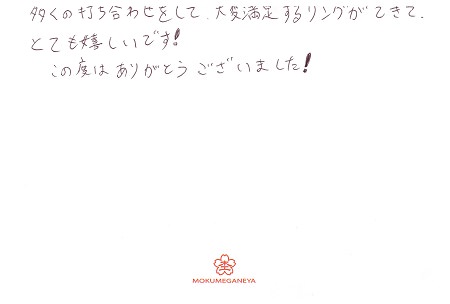 多くの打ち合わせをして、大変満足するリングができて、
とても嬉しいです!
この度はありがとうございました!
MOKUMEGANEYA